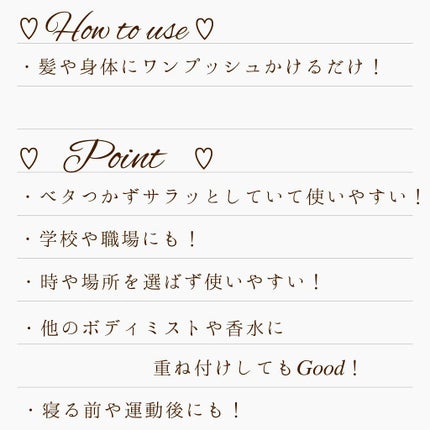 ♡ How to use ♡
・髪や身体にワンプッシュかけるだけ！
♡ Point ♡
・ベタつかずサラッとしていて使いやすい！
・学校や職場にも！
・時や場所を選ばず使いやすい！
・他のボディミストや香水に
重ね付けしてもGood！
・寝る前や運動後にも！